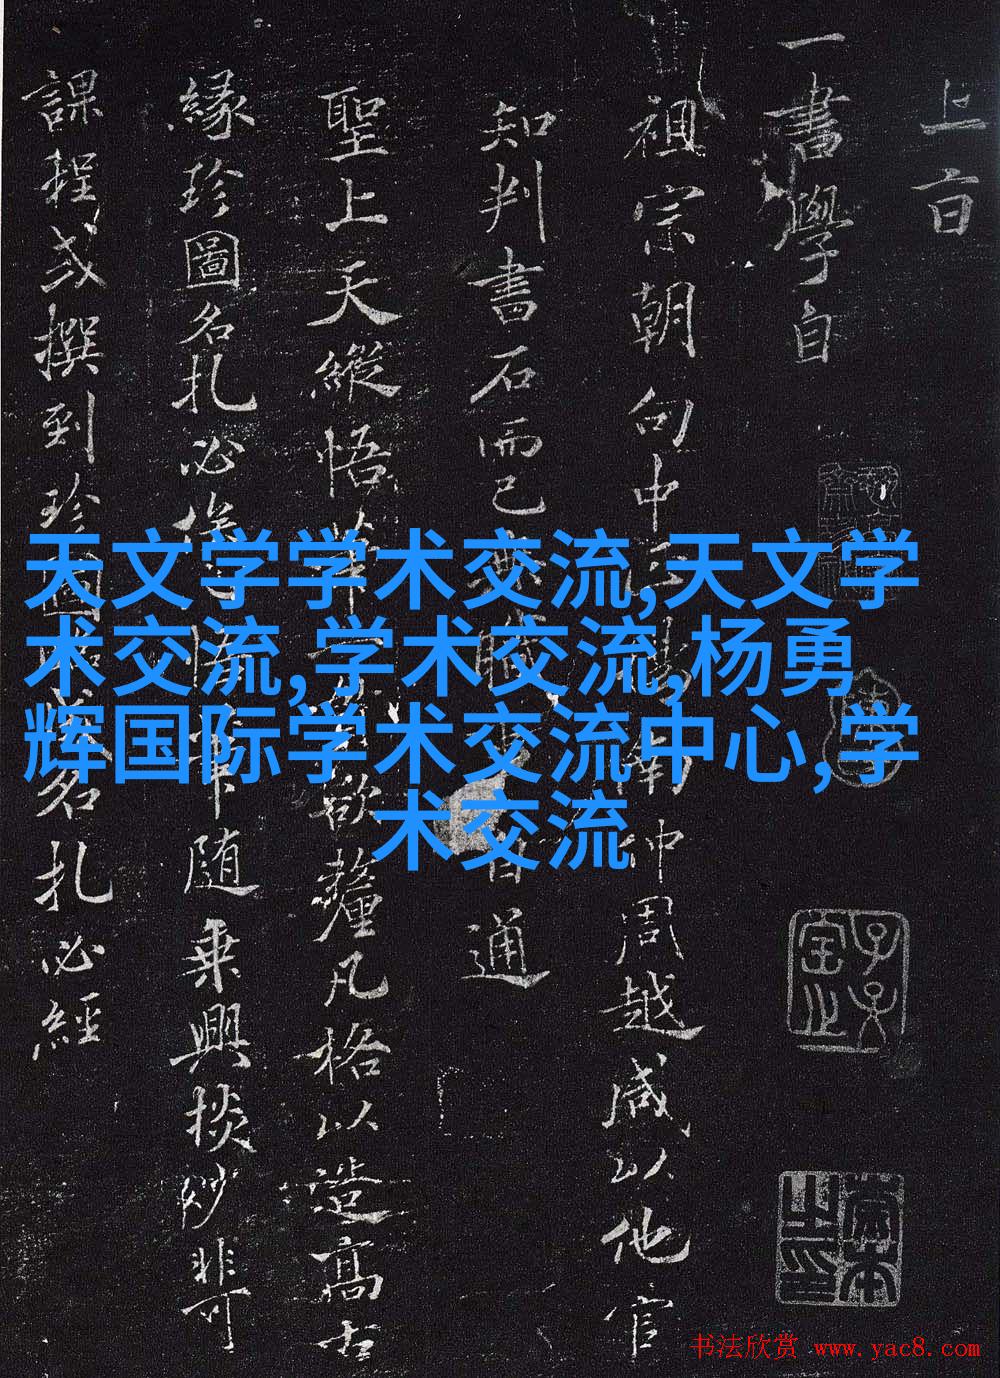 上
一書學自
祖宗朝句中正南仲周越咸以他官
知判書石而已無職自通
聖上天縱悟筆欲釐凡格以造高古
緣珍圖名札必情随乗興掞妙非可
課程或撰到珍圖名札必經
天文学学术交流,天文学
术交流,学术交流,杨勇
辉国际学术交流中心,学
术交流
书法欣赏 www.yac8.com